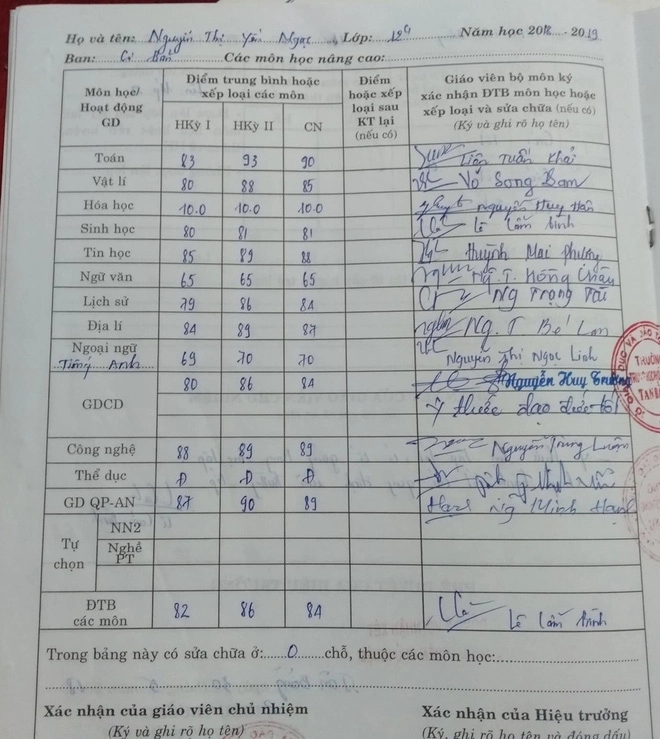 Họ và tên: Nguyễn Thị Yến Ngọc Lớp: 12 Năm học 2018 - 2019
Ban: Cơ Bản Các môn học nâng cao:
Môn học/ Hoạt động GD
Điểm trung bình hoặc xếp loại các môn
HKỳ I HKỳ II CN
Điểm hoặc xếp loại sau KT lại (nếu có)
Giáo viên bộ môn ký xác nhận ĐTB môn học hoặc xếp loại và sửa chữa (nếu có)
(Ký và ghi rõ họ tên)
Toán 83 93 90 Trần Tuấn Khải
Vật lí 80 88 85 Võ Song Ban
Hóa học 10.0 10.0 10.0 Nguyễn Huy Hân
Sinh học 80 81 81 Lê Cẩm Bình
Tin học 85 89 88 Huỳnh Mai Phương
Ngữ văn 65 65 65 T. Hồng Châu
Lịch sử 79 86 84 Ng Trọng Tài
Địa lí 84 89 87 Ng. T Bé Lan
Ngoại ngữ
Tiếng Anh 69 70 70 Nguyễn Thị Ngọc Linh
GDCD 80 86 84 Nguyễn Huy Trường
Ý thức đạo đức tốt
Công nghệ 88 89 89 Nguyễn Trung
Thể dục Đ Đ Đ
GD QP-AN 87 90 89 Ng Minh
Tự chọn
NN2
Nghề PT
ĐTB các môn 82 86 84 Lê Cẩm Bình
Trong bảng này có sửa chữa ở: 0 chỗ, thuộc các môn học:
Xác nhận của giáo viên chủ nhiệm
(Ký và ghi rõ họ tên)
Xác nhận của Hiệu trưởng
(Ký, ghi rõ họ tên và đóng dấu)